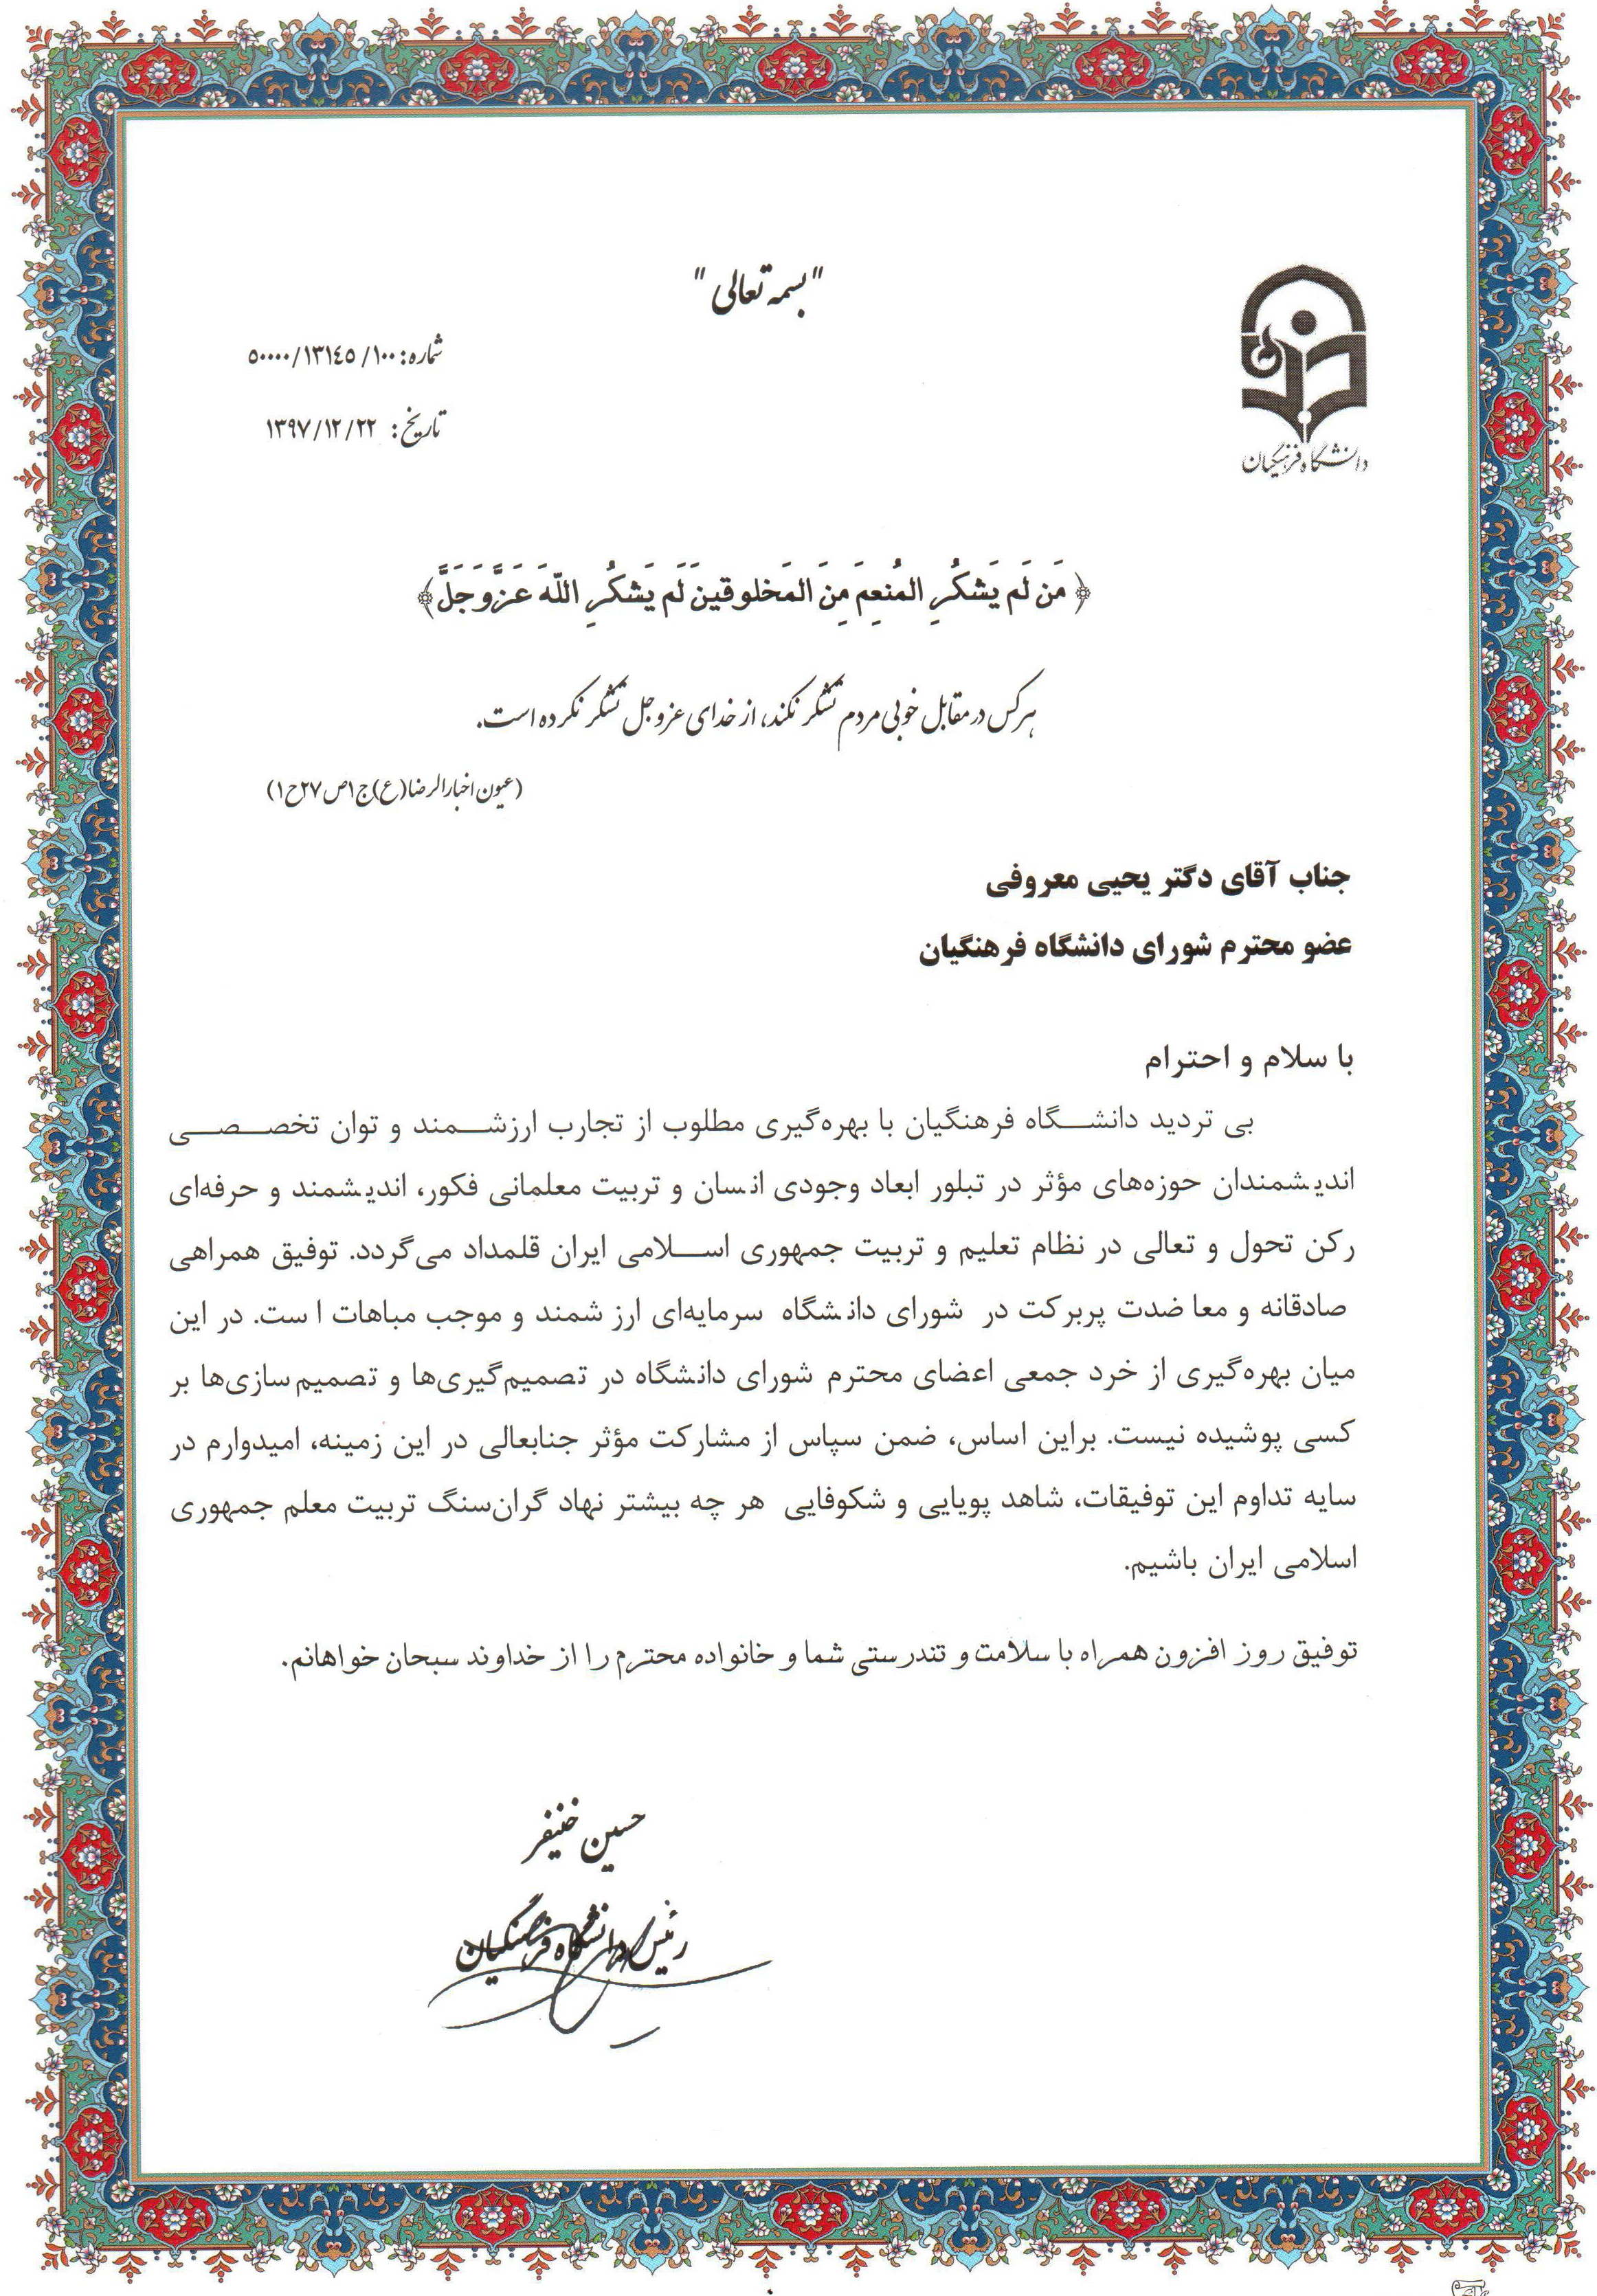 "بسمه تعالی"
شماره: ۵۰۰۰۰/۱۳۱٤۵/۱۰۰
تاریخ: ۱۳۹۷/۱۲/۲۲
دانشگاه فرهنگیان
﴿مَن لَم یَشکُرِ المُنعِمَ مِنَ المَخلوقینَ لَم یَشکُرِ اللّهَ عَزَّوَجَلَّ﴾
هرکس در مقابل خوبی مردم تشکر نکند، از خدای عزوجل تشکر نکرده است.
(عیون اخبارالرضا(ع)ج۱ص۲۷ح۱)
جناب آقای دکتر یحیی معروفی
عضو محترم شورای دانشگاه فرهنگیان
با سلام و احترام
بی تردید دانشگاه فرهنگیان با بهره‌گیری مطلوب از تجارب ارزشمند و توان تخصصی
اندیشمندان حوزه‌های مؤثر در تبلور ابعاد وجودی انسان و تربیت معلمانی فکور، اندیشمند و حرفه‌ای
رکن تحول و تعالی در نظام تعلیم و تربیت جمهوری اسلامی ایران قلمداد می‌گردد. توفیق همراهی
صادقانه و معاضدت پربرکت در شورای دانشگاه سرمایه‌ای ارزشمند و موجب مباهات است. در این
میان بهره‌گیری از خرد جمعی اعضای محترم شورای دانشگاه در تصمیم‌گیری‌ها و تصمیم‌سازی‌ها بر
کسی پوشیده نیست. براین اساس، ضمن سپاس از مشارکت مؤثر جنابعالی در این زمینه، امیدوارم در
سایه تداوم این توفیقات، شاهد پویایی و شکوفایی هر چه بیشتر نهاد گران‌سنگ تربیت معلم جمهوری
اسلامی ایران باشیم.
توفیق روز افزون همراه با سلامت و تندرستی شما و خانواده محترم را از خداوند سبحان خواهانم.
حسین خنیفر
رئیس دانشگاه فرهنگیان